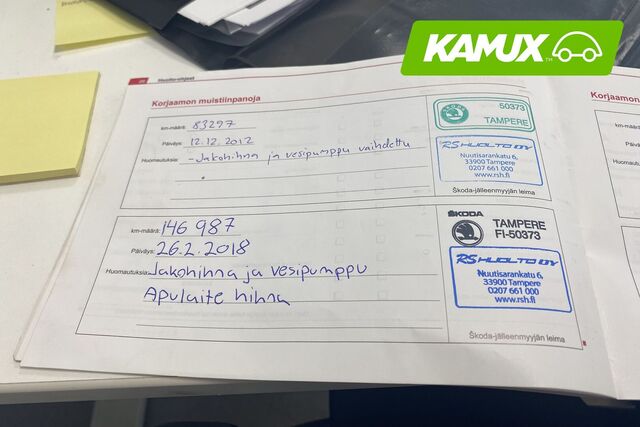 KAMUX
Huolto-ohjeet
Korjaamon muistiinpanoja
km-määrä: 83297
Päiväys: 12.12.2012
Huomautuksia: - Jakohihna ja vesipumppu vaihdettu
50373
TAMPERE
RS HUOLTO OY
Nuutisarankatu 6,
33900 Tampere
0207 661 000
www.rsh.fi
Škoda-jälleenmyyjän leima
km-määrä: 146 987
Päiväys: 26.2.2018
Huomautuksia: Jakohihna ja vesipumppu
Apulaite hihna
ŠKODA
TAMPERE
FI-50373
RS HUOLTO OY
Nuutisarankatu 6,
33900 Tampere
0207 661 000
www.rsh.fi
Škoda-jälleenmyyjän leima